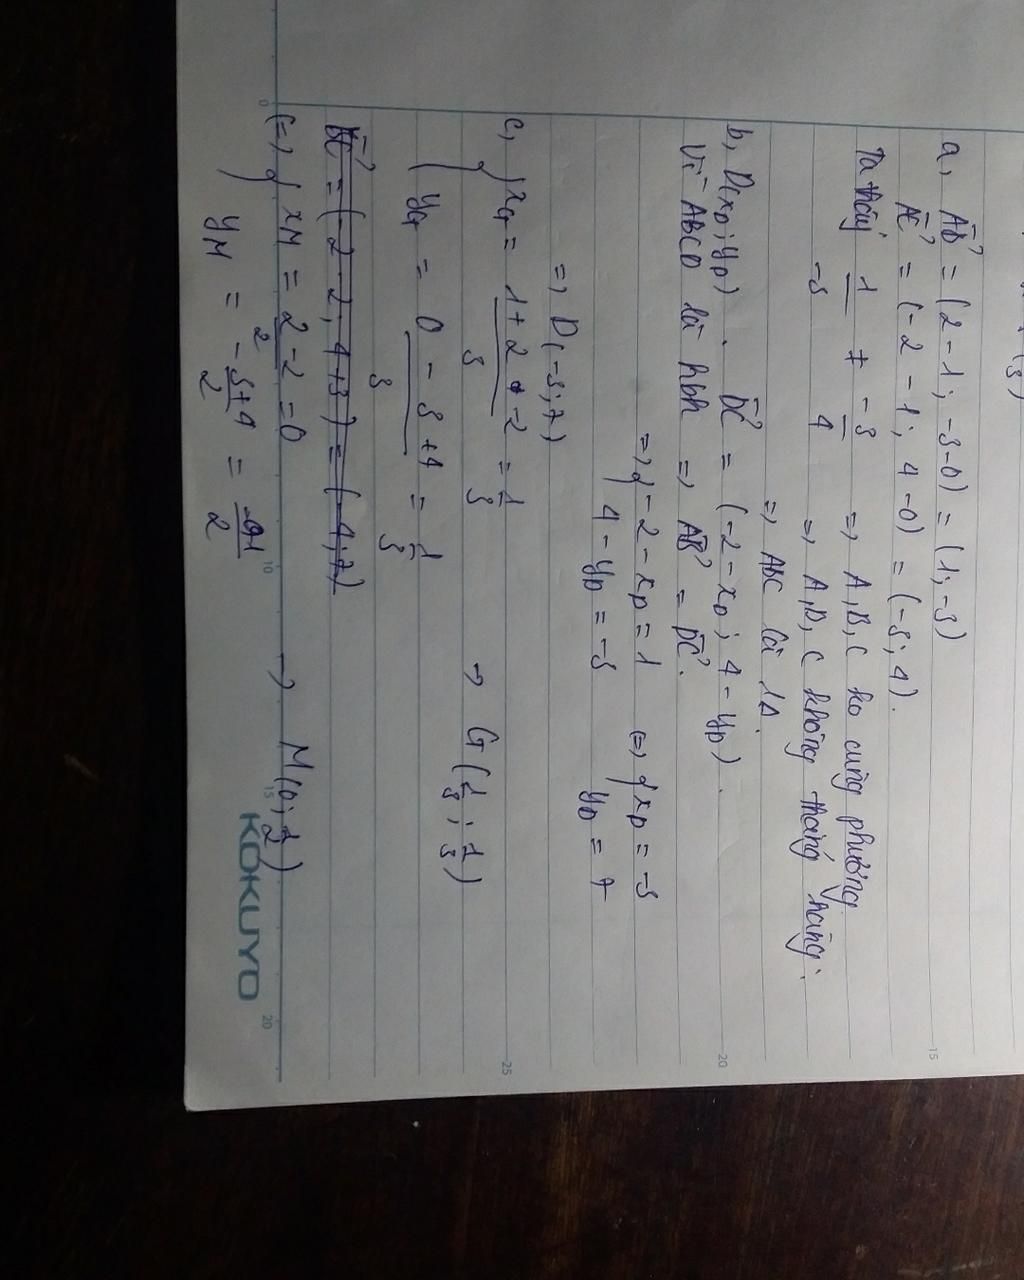 a, AB→ = (2-1; -3-0) = (1; -3)
AC→ = (-2-1; 4-0) = (-3; 4).
Ta thấy 1/-3 ≠ -3/4 => A, B, C ko cùng phương
=> A, B, C không thẳng hàng.
=> ABC là 1Δ.
b, D(xD; yD). DC→ = (-2-xD; 4-yD).
Vì ABCD là hbh => AB→ = DC→.
=> { -2-xD = 1 <=> { xD = -3
4-yD = -3 yD = 7
=> D(-3; 7)
c, { xG = (1+2+-2)/3 = 1/3
yG = (0-3+4)/3 = 1/3 -> G(1/3; 1/3)
BC→ = (-2-2; 4+3) = (-4; 7)
(=) { xM = (2-2)/2 = 0 -> M(0; 1/2)
yM = (-3+4)/2 = 1/2
KOKUYO
0
10
15
20
15
20
25